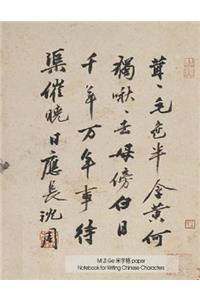 茸〻毛色半含黃何
獨啾〻去母傍白日
千年万年事待
渠催曉日應長沈周
Mi Zi Ge 米字格 paper
Notebook for Writing Chinese Characters